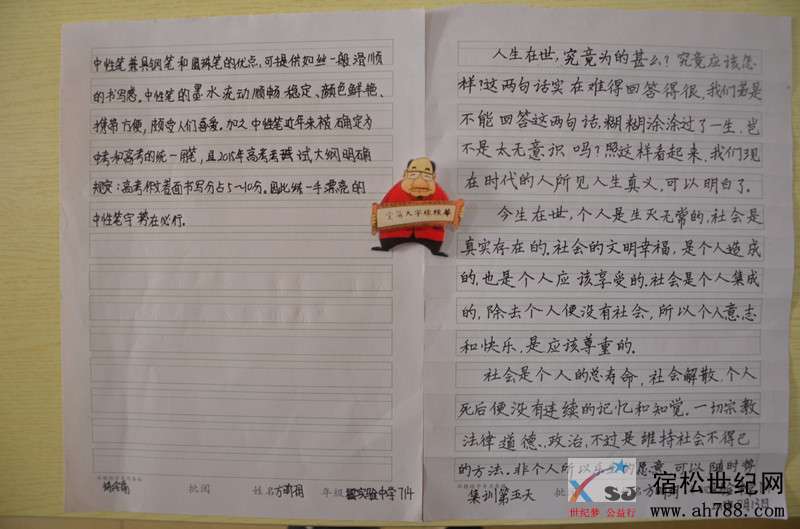 中性笔兼具钢笔和圆珠笔的优点,可提供如丝一般滑顺
的书写感.中性笔的墨水流动顺畅、稳定、颜色鲜艳、
携带方便,颇受人们喜爱.加之中性笔近年来被确定为
中考和高考的统一用笔,且2015年高考考试大纲明确
规定:高考作文卷面书写分占5~10分.因此练一手漂亮的
中性笔字势在必行.
批阅 姓名 年级 实验中学 714
人生在世,究竟为的甚么?究竟应该怎
样?这两句话实在难得回答得很,我们若是
不能回答这两句话,糊糊涂涂过了一生,岂
不是太无意识吗?照这样看起来,我们现
在时代的人所见人生真义,可以明白了.
今生在世,个人是生灭无常的,社会是
真实存在的.社会的文明幸福,是个人造成
的,也是个人应该享受的.社会是个人集成
的,除去个人便没有社会,所以个人意志
和快乐,是应该尊重的.
社会是个人的总寿命,社会解散,个人
死后便没有连续的记忆和知觉.一切宗教
法律道德、政治,不过是维持社会不得已
的方法.非个人所以乐生的原意,可以随时势
集训第五天
宿松世纪网
www.ah788.com
世纪梦 公益行